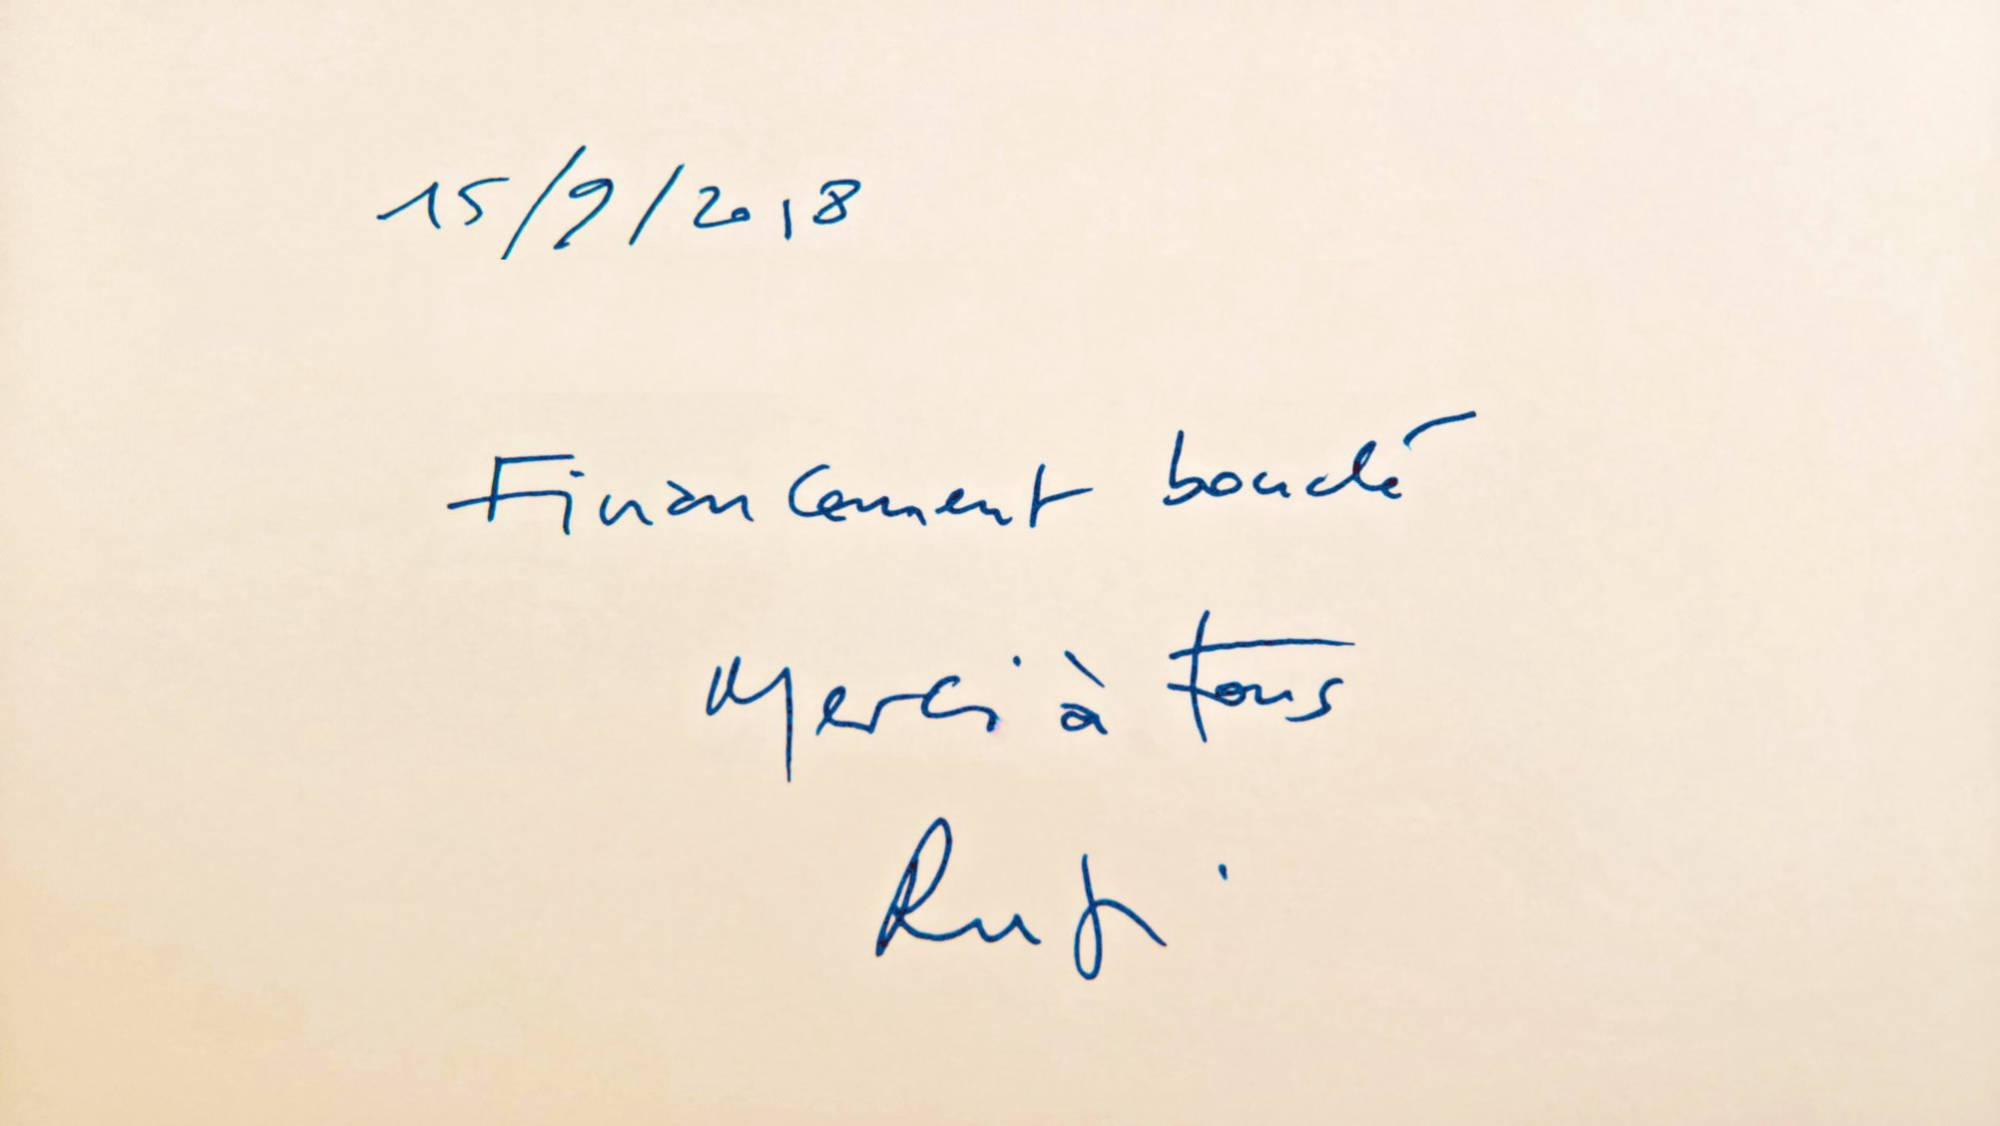 15/9/2018
Financement bouclé
Merci à tous
Rufi